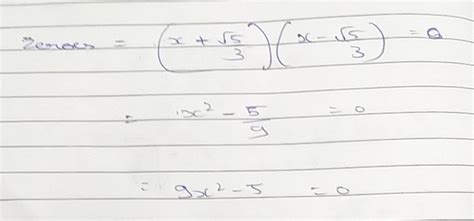 zeroes = (x + √5/3)(x - √5/3) = 0
= x² - 5/9 = 0
= 9x² - 5 = 0